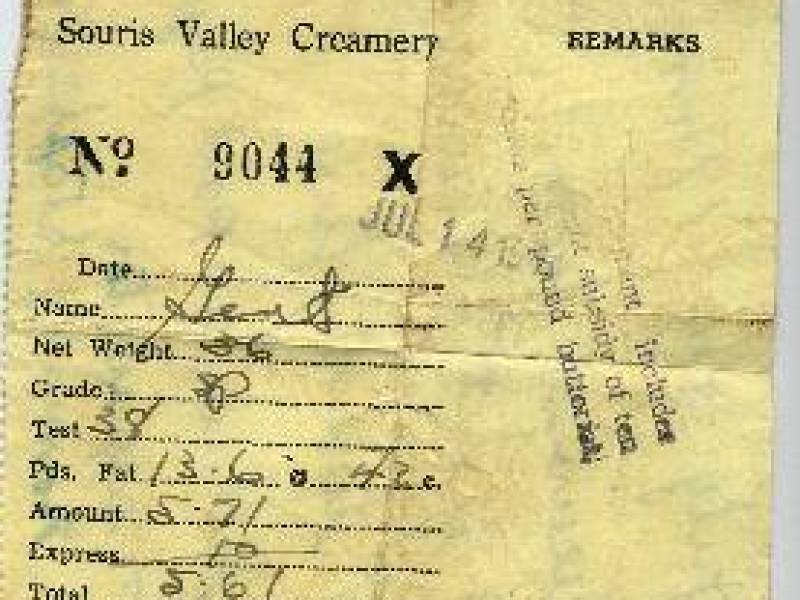 Souris Valley Creamery
REMARKS
No. 9044 X
JUL 14
Date
Name
Net Weight 36
Grade Sp
Test 38
Pds. Fat 13.6 @ 42 c.
Amount 5.71
Express 10
Total 5.61
includes
subsidy of ten
per pound butterfat